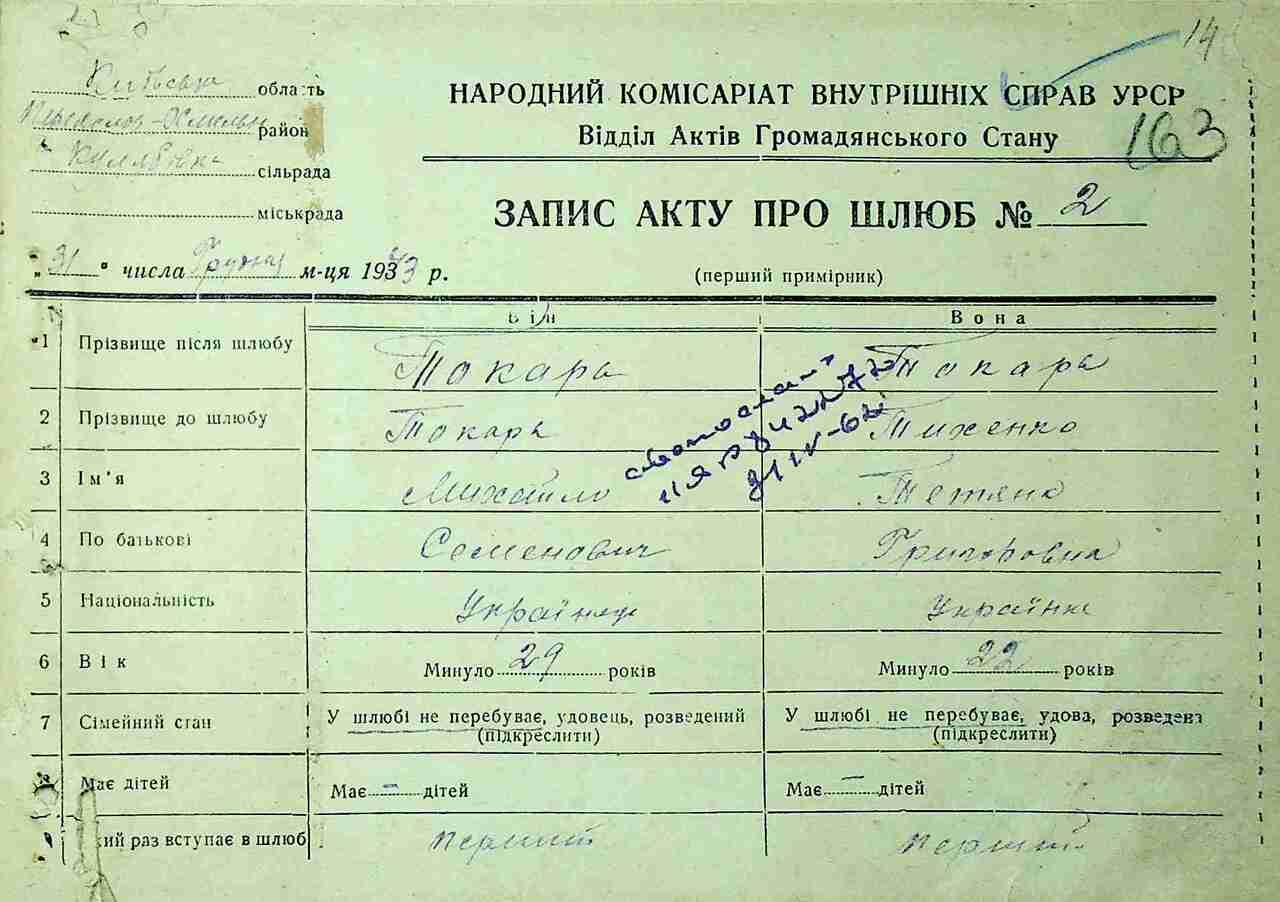 14
Київська область
Переяслав-Хмельн район
сільрада
міськрада
НАРОДНИЙ КОМІСАРІАТ ВНУТРІШНІХ СПРАВ УРСР
Відділ Актів Громадянського Стану
163
ЗАПИС АКТУ ПРО ШЛЮБ № 2
„31" числа Грудня м-ця 1943 р.
(перший примірник)
Він Вона
1 Прізвище після шлюбу Токарь Токарь
2 Прізвище до шлюбу Токарь Тиженко
3 Ім'я Михайло Тетяна
4 По батькові Семенович Григоровна
5 Національність Українець Українка
6 Вік Минуло 29 років Минуло 22 років
7 Сімейний стан У шлюбі не перебуває, удовець, розведений У шлюбі не перебуває, удова, розведена
(підкреслити) (підкреслити)
8 Має дітей Має - дітей Має - дітей
кий раз вступає в шлюб Перший Перший